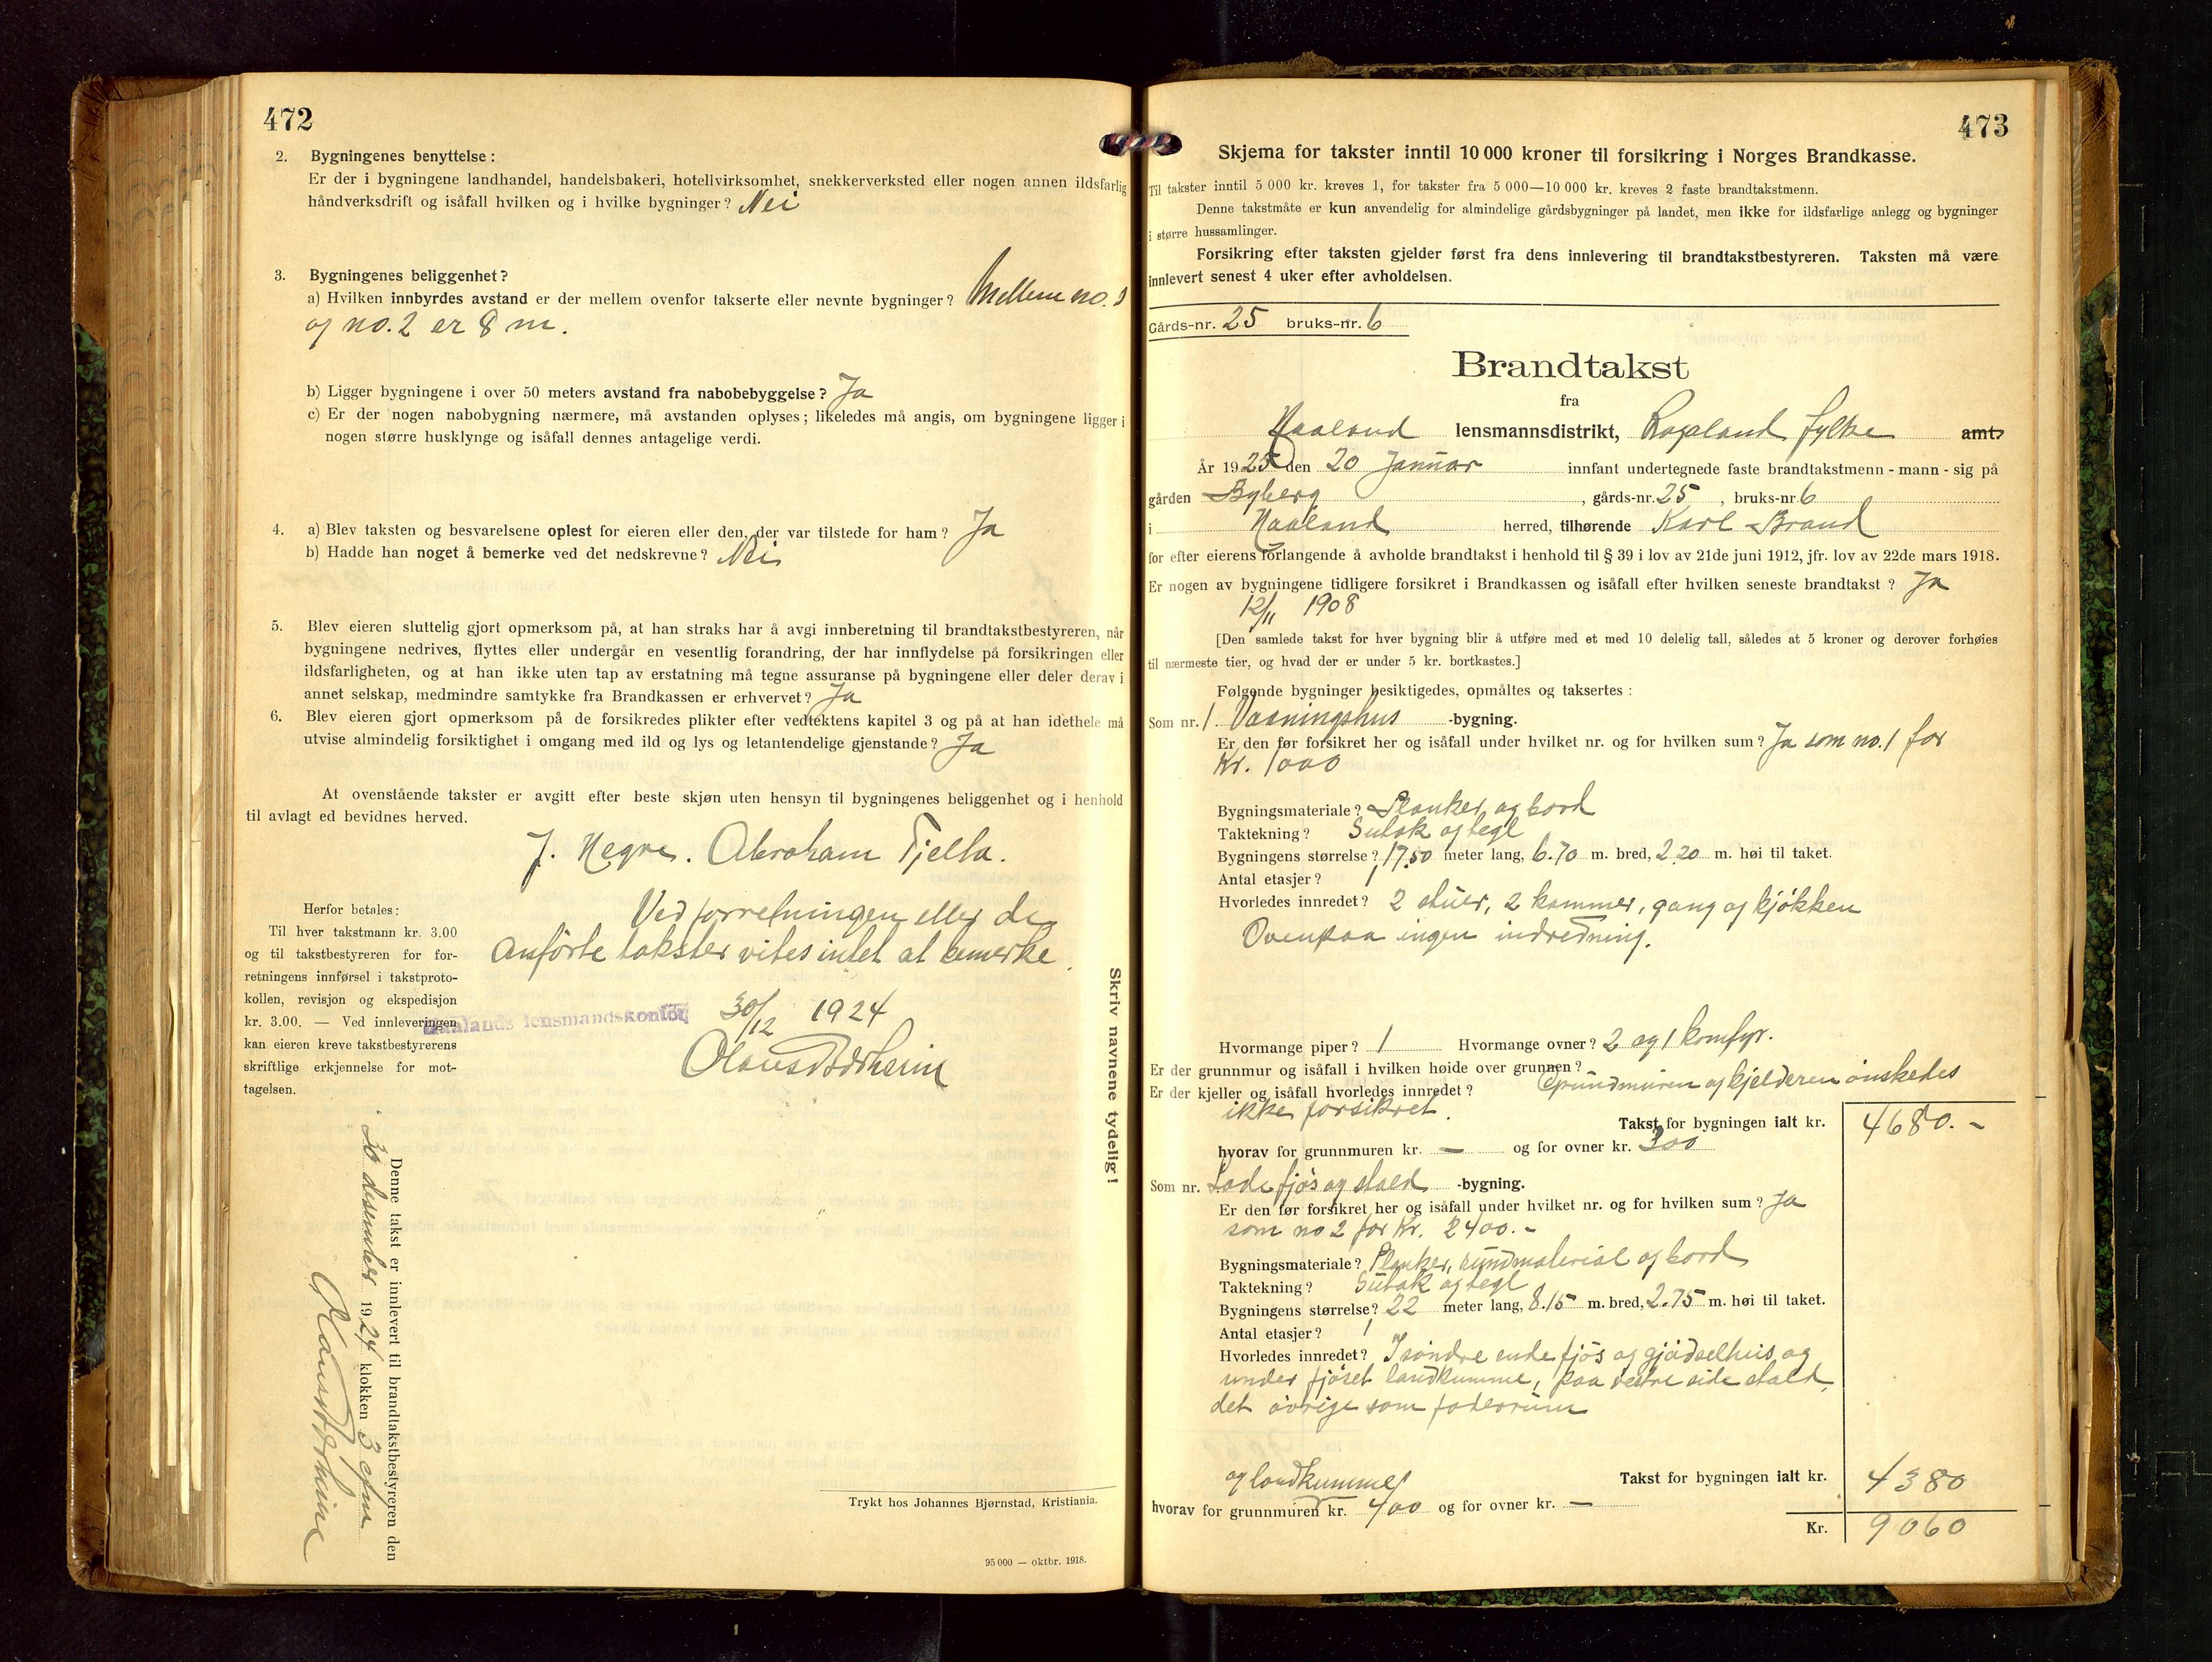 472
2. Bygningenes benyttelse:
Er der i bygningene landhandel, handelsbakeri, hotellvirksomhet, snekkerverksted eller nogen annen ildsfarlig
håndverksdrift og isåfall hvilken og i hvilke bygninger? Nei
3. Bygningenes beliggenhet?
a) Hvilken innbyrdes avstand er der mellem ovenfor takserte eller nevnte bygninger? Mellem no. 1
og no. 2 er 8 m.
b) Ligger bygningene i over 50 meters avstand fra nabobebyggelse? Ja
c) Er der nogen nabobygning nærmere, må avstanden oplyses; likeledes må angis, om bygningene ligger i
nogen større husklynge og isåfall dennes antagelige verdi.
4. a) Blev taksten og besvarelsene oplest for eieren eller den, der var tilstede for ham? Ja
b) Hadde han noget å bemerke ved det nedskrevne? Nei
5. Blev eieren sluttelig gjort opmerksom på, at han straks har å avgi innberetning til brandtakstbestyreren, når
bygningene nedrives, flyttes eller undergår en vesentlig forandring, der har innflydelse på forsikringen eller
ildsfarligheten, og at han ikke uten tap av erstatning må tegne assuranse på bygningene eller deler derav i
annet selskap, medmindre samtykke fra Brandkassen er erhvervet? Ja
6. Blev eieren gjort opmerksom på de forsikredes plikter efter vedtektens kapitel 3 og på at han idethele må
utvise almindelig forsiktighet i omgang med ild og lys og letantendelige gjenstande? Ja
At ovenstående takster er avgitt efter beste skjøn uten hensyn til bygningenes beliggenhet og i henhold
til avlagt ed bevidnes herved.
J. Hegre. Abraham Fjelta.
Ved forretningen eller de
anførte takster vites intet at bemerke.
Herfor betales:
Til hver takstmann kr. 3.00
og til takstbestyreren for for-
retningens innførsel i takstproto-
kollen, revisjon og ekspedisjon
kr. 3.00. — Ved innleveringen
kan eieren kreve takstbestyrerens
skriftlige erkjennelse for mot-
tagelsen.
Haalands lensmandskontor 30/12 1924
Skriv navnene tydelig!
Denne takst er innlevert til brandtakstbestyreren den
30 desember 1924 klokken 3 efm
Trykt hos Johannes Bjørnstad, Kristiania.
95 000 — oktbr. 1918.
473
Skjema for takster inntil 10 000 kroner til forsikring i Norges Brandkasse.
Til takster inntil 5 000 kr. kreves 1, for takster fra 5 000—10 000 kr. kreves 2 faste brandtakstmenn.
Denne takstmåte er kun anvendelig for almindelige gårdsbygninger på landet, men ikke for ildsfarlige anlegg og bygninger
i større hussamlinger.
Forsikring efter taksten gjelder først fra dens innlevering til brandtakstbestyreren. Taksten må være
innlevert senest 4 uker efter avholdelsen.
Gårds-nr. 25 bruks-nr. 6
Brandtakst
fra
Haaland lensmannsdistrikt, Rogaland fylke amt.
År 1925 den 20 Januar innfant undertegnede faste brandtakstmenn - mann - sig på
gården Byberg, gårds-nr. 25, bruks-nr. 6
i Haaland herred, tilhørende Karl Brand
for efter eierens forlangende å avholde brandtakst i henhold til § 39 i lov av 21de juni 1912, jfr. lov av 22de mars 1918.
Er nogen av bygningene tidligere forsikret i Brandkassen og isåfall efter hvilken seneste brandtakst? Ja
12/11 1908
[Den samlede takst for hver bygning blir å utføre med et med 10 delelig tall, således at 5 kroner og derover forhøies
til nærmeste tier, og hvad der er under 5 kr. bortkastes.]
Følgende bygninger besiktigedes, opmåltes og taksertes:
Som nr. 1. Vaaningshus -bygning.
Er den før forsikret her og isåfall under hvilket nr. og for hvilken sum? Ja som no. 1 for
Kr. 1000
Bygningsmateriale? Planker og bord
Taktekning? Sutak og tegl
Bygningens størrelse? 17.50 meter lang, 6.70 m. bred, 2.20 m. høi til taket.
Antal etasjer? 1
Hvorledes innredet? 2 stuer, 2 kammer, gang og kjøkken
Ovenpaa ingen indredning.
Hvormange piper? 1 Hvormange ovner? 2 og 1 komfyr.
Er der grunnmur og isåfall i hvilken høide over grunnen?
Er der kjeller og isåfall hvorledes innredet? Grundmuren og kjelderen ønskedes
ikke forsikret.
Takst for bygningen ialt kr. 4680.-
hvorav for grunnmuren kr. — og for ovner kr. 300
Som nr. Lade fjøs og stald -bygning.
Er den før forsikret her og isåfall under hvilket nr. og for hvilken sum? Ja
som no 2 for Kr. 2400.-
Bygningsmateriale? Planker, rundmaterial og bord
Taktekning? Sutak og tegl
Bygningens størrelse? 22 meter lang, 8.15 m. bred, 2.75 m. høi til taket.
Antal etasjer? 1
Hvorledes innredet? I søndre ende fjøs og gjødselhus, og
under fjøset landkumme, paa vestre side stald,
det øvrige som foderrum
og landkumme
Takst for bygningen ialt kr. 4380
hvorav for grunnmuren kr. 400 og for ovner kr. —
Kr. 9060